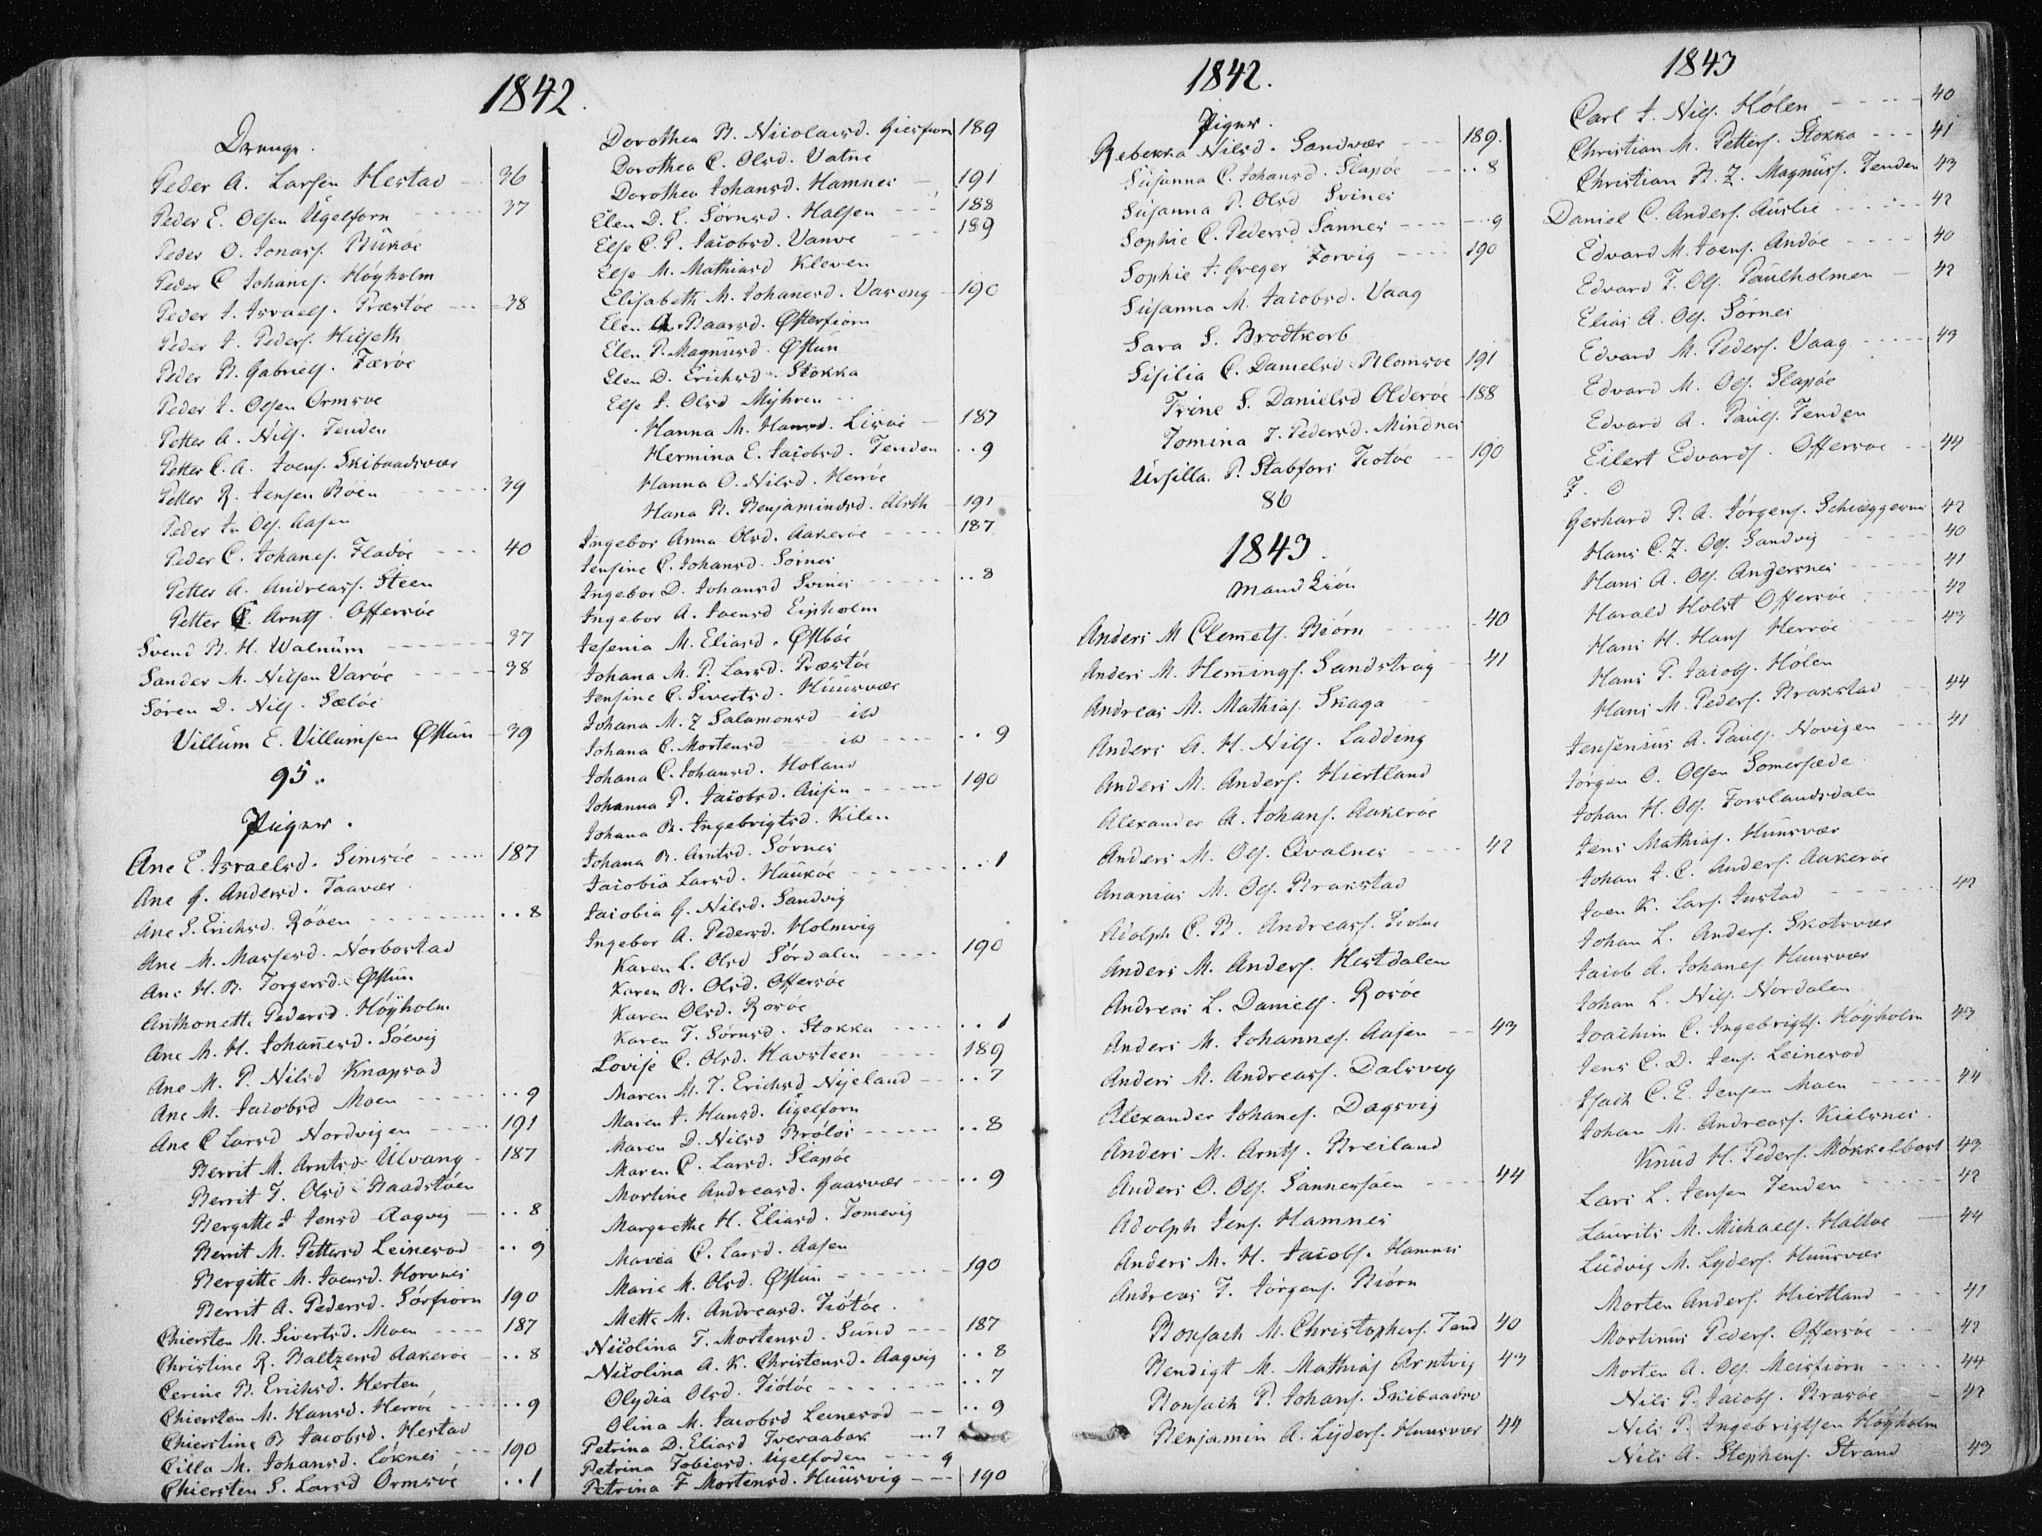 1842.
Drenge.
Peder A. Larsen Hestad 36
Peder E. Olsen Ugelforn 37
Peder O. Jonass. Bükøe
Peder C Johanes. Høyholm
Peder J. Israels. Præstøe 38
Peder J. Peders. Hilseth
Peder B. Gabriels. Færøe
Peder J. Olsen Ormsøe
Petter A. Nils. Tenden
Petter C. A. Joens. Skibaadsvær
Petter R. Jensen Røen 39
Peder Jn Ols. Aasen
Peder C. Johanes. Fladøe 40
Petter A. Andreass. Steen
Petter C. Arnts. Offersøe
Svend B. H. Walnüm 37
Sander M. Nilsen Varøe 38
Søren D. Nils. Sæløe
Villum E. Villumsen Østün 39
95.
Piger.
Ane E. Israelsd. Simsøe 187
Ane G. Andersd. Taavær
Ane S. Erichsd. Røøen ..8
Ane M. Massesd. Norbostad
Ane H. B. Torgersd. Østün
Anthonette Pedersd. Høyholm
Ane M. H. Johañesd. Søevig
Ane M. P. Nilsd Knapsad
Ane M. Jacobsd Moen ..9
Ane C Larsd Nordvigen 191
Berrit M. Arntsd Ulvang 187
Berrit J. Olsd Baadstøen
Bergitte J Jensd Aagvig ..8
Berrit M. Pettersd Leinesod ..9
Bergitte M. Joensd. Horvnes
Berrit A. Pedersd. Sørfiorn 190
Chiersten M. Sivertsd. Moen 187
Christine R. Baltzersd Aakerøe ..8
Cerine B. Erichsd. Herten
Chiersten M. Hansd. Herrøe ..9
Chierstine B Jacobsd. Hestad
Cilla M. Johansd. Løknes 190
Chiersten S. Larsd Ormsøe ..1
Dorothea B. Nicolaisd. Giesfiorn 189
Dorothea C. Olsd. Vatne
Dorothea Johansd. Hamnes 191
Elen D. C. Sørnsd. Halsen 188
Else C. P. Jacobsd. Vanve 189
Else M. Mathiasd Kleven
Elisabeth M. Johañesd. Vaseng 190
Elen A. Baarsd. Østerfiorn
Elen P. Magnüsd. Østün
Elen D. Erichsd. Stokka
Else J. Olsd Myhren
Hanna M. Hansd. Lisøe 187
Hermina E. Jacobsd. Tenden ..9
Hanna O. Nilsd. Herrøe
Hana B. Benjaminsd. Alsth 191
Ingebor Anna Olsd. Aakerøe 187
Jensine C. Johansd. Sørnes
Ingebor D. Johansd Svines ..8
Ingebor A. Joensd Eisholm
Jesenia M. Eliasd. Østbøe
Johana M. P. Larsd. Præstøe
Jensine C. Sivertsd. Hüüsvær
Johana M. Z Salamonsd id
Johana C. Mortensd id ..9
Johana C. Johansd. Holand
Johanna P. Jacobsd. Aüsen 190
Johana B. Ingebrigtsd. Kilen
Johana B. Arntsd. Sørnes
Jacobia Larsd. Haükøe ..1
Jacobia G. Nilsd. Sandvig
Ingebor A. Pedersd. Holmvig
Karen L. Olsd Sørdalen 190
Karen B. Olsd. Offersøe
Karen Olsd. Rosøe
Karen T. Sørnsd. Stokka ..1
Lovise C. Olsd. Havsteen 189
Maren M. T. Erichsd Nyeland ..7
Maren J. Hansd. Ügelforn
Maren D. Nilsd Brøløs ..8
Maren C. Larsd. Slapøe
Martine Andreasd. Gaasvær ..9
Margrethe H. Eliasd. Tomevig
Maria C. Larsd. Aasen
Marie M. Olsd. Østün 190
Mette M. Andreasd. Tiøtøe.
Nicolina T. Mortensd. Sünd 187
Nicolina A. K. Christensd. Aagvig ..8
Olydia Olsd. Tiøtøe ..7
Olina M. Jacobsd Leinesod ..9
Petrina D. Eliasd Tveraabak ..7
Petrina Tobiasd. Ügelfoden 9
Petrina F Mortensd. Hüüsvig 190
1842.
Piger.
Rebekka Nilsd. Sandvær 189.
Susanna C. Johansd. Slapøe ..8
Susanna P. Olsd Svines
Sophie C. Pedersd Sannes ..9
Sophie J. Greger Forvig 190
Süsanna M. Jacobsd. Vaag
Sara S. Brodtkorb
Sisilia C. Danielsd. Blomsøe 191
Trine S. Danielsd Olderøe 188
Tomina J. Pedersd. Mindnes
Ursilla. P. Stabfors Tiøtøe 190
86
1843.
Mand Kiøn
Anders M Clemets. Biørn 40
Anders M. Hemings. Sandstrag 41
Andreas M. Mathias. Skaga
Anders A. H. Nils. Ladding
Anders M. Anders. Hiertland
Alexander A. Johans. Aakerøe
Anders M. Ols. Qvalnes 42
Ananias M. Ols. Brakstad
Adolph C. B. Andreass. Tiøtøe
Anders M. Anders. Hestdalen
Andreas L. Daniels. Rosøe
Anders M. Johannes. Aasen 43
Anders M. Andreass. Dalsvog
Alexander Johanes. Dagsvig
Anders M. Arnts. Breiland
Anders O. Ols. Sannessøen 44
Adolph Jens. Hamnes
Anders M. H. Jacobs. Hamnes
Andreas T. Jørgens. Biørn
Bonsach M. Christophers. Tend 40
Bendigt M. Mathias Arntvig 43
Bonsach P. Johans. Skibaadsv
Benjamin A. Lyders. Huusvær 44
1843
Carl J. Nils. Hølen 40
Christian M. Petters. Stokka 41
Christian B. Z. Magnüs. Tenden 43
Daniel C. Anders. Aüslie 42
Edvard M. Joens. Andøe 40
Edvard T. Ols. Paülholmen 42
Elias A. Ols. Sørnes
Edvard M. Peders. Vaag 43
Edvard M. Ols. Slapøe
Edvard A. Pauls. Tenden
Eilert Edvards. Offersøe 44
F. O
Gerhard P. A. Jørgens. Schieggesnes 42
Hans C. Z. Ols. Sandvig 40
Hans A. Ols. Angersnes 41
Harald Holst Offersøe 42
Hans H. Hans Herrøe 43
Hans P. Jacobs. Hølen
Hans M. Peders. Brakstad 44
Jensenius A. Pauls. Novigen 41
Jørgen O. Olsen Somersæde
Johan H. Ols. Forslandsdalen
Jens Mathias. Huusvær
Johan J. E. Anders. Aakerøe
Joen K. Lars. Justad 42
Johan L. Anders. Skotsvær
Jacob A. Johanes. Huusvær
Johan L. Nils. Nordalen
Joachim C. Ingebrigts. Høyholm 43
Jens C. D. Jens. Leinesod
Isach C. E. Jensen Moen 44
Johan M. Andreass. Kielsnes.
Knüd H. Peders. Møkkelbost 43
Lars L. Jensen Tenden 42
Laurits M. Michaels. Haltøe 44
Ludvig M. Lyders. Huusvær
Morten Anders. Hiertland 41
Martinus Peders. Offersøe 42
Morten A. Ols. Meisfiorn 44
Nils P. Jacobs. Brasøe 42
Nils P. Ingebrigtsen Høyholm
Nils A. Stephens. Strand 43